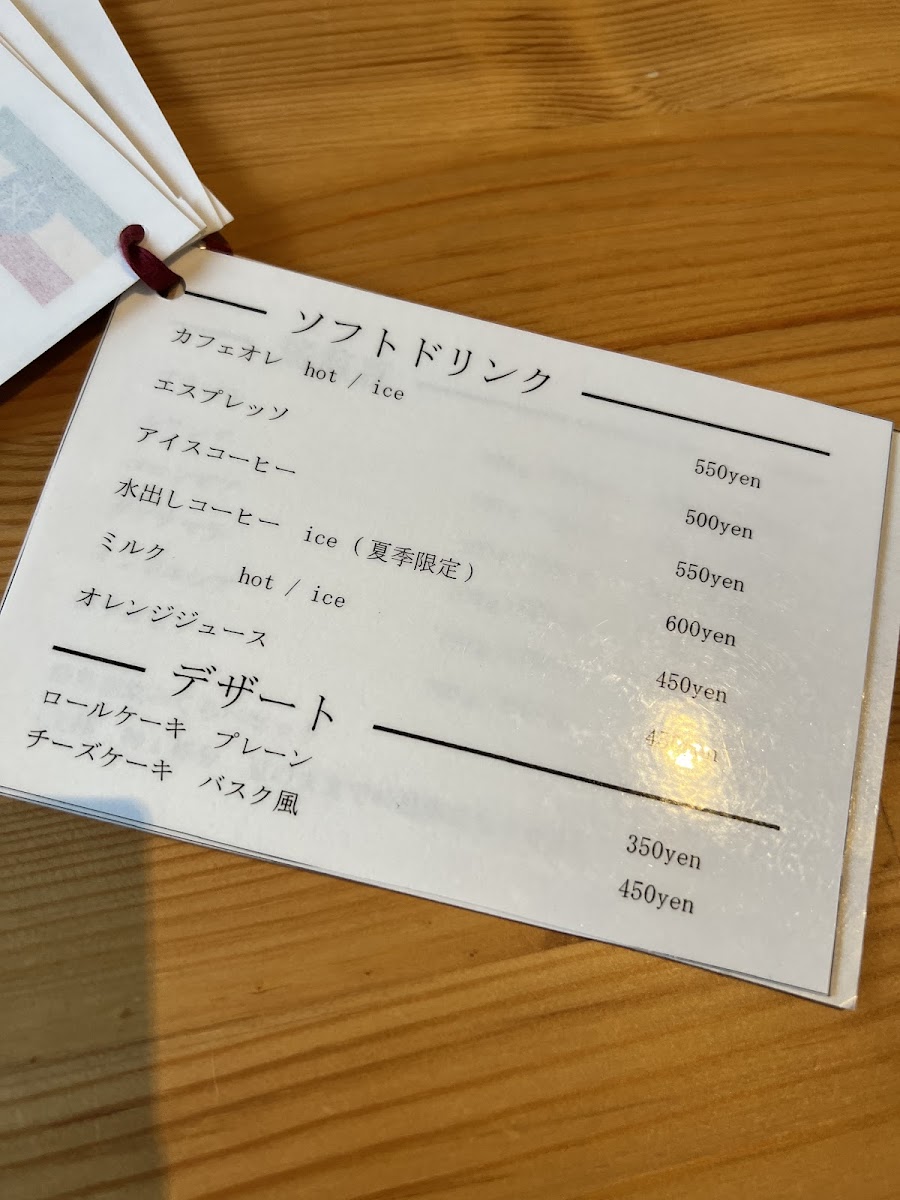 ソフトドリンク
カフェオレ hot / ice 550yen
エスプレッソ 500yen
アイスコーヒー 550yen
水出しコーヒー ice (夏季限定) 600yen
ミルク hot / ice 450yen
オレンジジュース
デザート
ロールケーキ プレーン 350yen
チーズケーキ バスク風 450yen